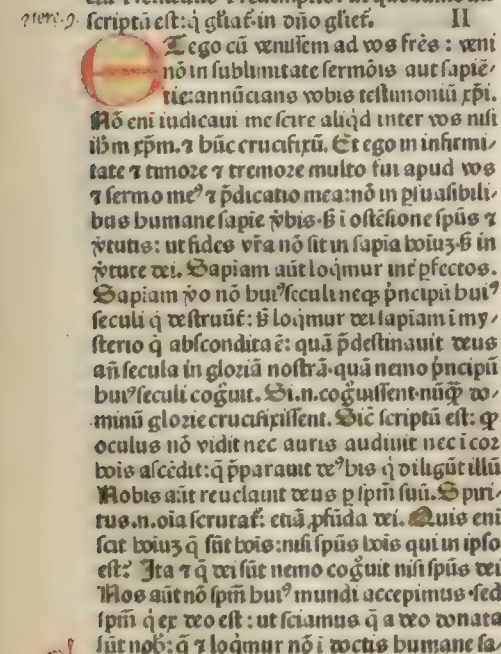 scriptū est: q̇ gliat̄ in dn̄o gliet̄. II
Et ego cū venissem ad vos fr̄es: veni
nō in sublimitate sermōis aut sapiē/
tie: annūcians vobis testimoniū xp̄i.
Nō eni iudicaui me scire aliqd inter vos nisi
ih̄m xp̄m. ⁊ hūc crucifixū. Et ego in infirmi/
tate ⁊ timore ⁊ tremore multo fui apud vos
⁊ sermo meꝰ ⁊ p̄dicatio mea: nō in ꝑsuasibili/
bus humane sapiē v̄bis. sʒ i ostēsione sp̄us ⁊
v̄tutis: ut fides vr̄a nō sit in sapia hoiuʒ. sʒ in
v̄tute dei. Sapiam aūt loq̇mur int̄ ꝑfectos.
Sapiam v̄o nō huiꝰ seculi neqʒ p̄ncipū huiꝰ
seculi q̇ destruūt̄: sʒ loq̇mur dei sapiam i my/
sterio q̄ abscondita ē: quā p̄destinauit deus
an̄ secula in gloriā nostrā. quā nemo p̄ncipū
huiꝰ seculi cognuit. Si .n. cognuissent. nūqʒ do/
minū glorie crucifixissent. Sic̄ scriptū est: ꝙ
oculus nō vidit nec auris audiuit nec i cor
hois ascēdit: q̄ p̄parauit deꝰ his q̇ diligūt illū
Nobis aūt reuelauit deus ꝑ sp̄m suū. Spiri/
tus .n. oīa scrutat̄: etiā ꝓfūda dei. Quis eni
scit hoiuʒ q̄ sūt hois: nisi sp̄us hois qui in ipso
est? Ita ⁊ q̄ dei sūt nemo cognuit nisi sp̄us dei
Nos aūt nō sp̄m huiꝰ mundi accepimus. sed
sp̄m q̇ ex deo est: ut sciamus q̄ a deo donata
sūt nob̄: q̄ ⁊ loq̇mur nō i doctis humane sa/